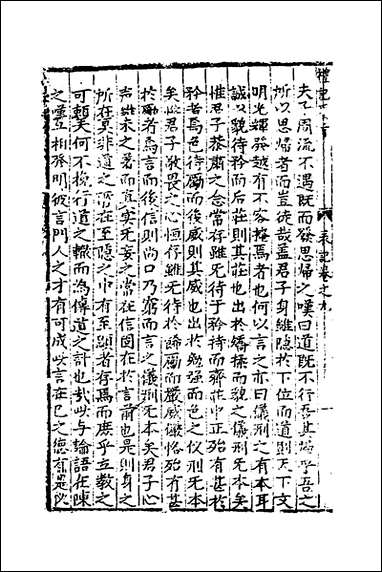 夫子周流不遇既而發思歸之嘆曰道既不行吾其歸乎吾之
所以思歸者而豈徒哉蓋君子身雖隱於下位而道則天下文
明光輝發越有不容掩焉者也何以言之亦曰儀刑之有本耳
誠以貌待矜而后莊則其莊也出於矯揉而貌之儀刑無本矣
惟君子恭肅之念常存雖無待於矜持而齋莊中正殆有甚於
矜者焉色待勵而後威則其威也出於勉强而色之儀刑無本
矣此君子敬畏之心恒存雖無待於歸勵而嚴威儼恪殆有甚
於勵者焉言而後信則尚口乃窮而言之儀刑無本矣君子心
声雖未之著而真实无妄之常在信固在於言前也是則身之
所在莫非道之所在至隱之中有至顯者存焉而庶乎立教之
可賴矣何不挽行道之轍而為傳道之計也哉此与論語在陳
之嘆互相發明彼言門人之才有可成此言在己之德有足以